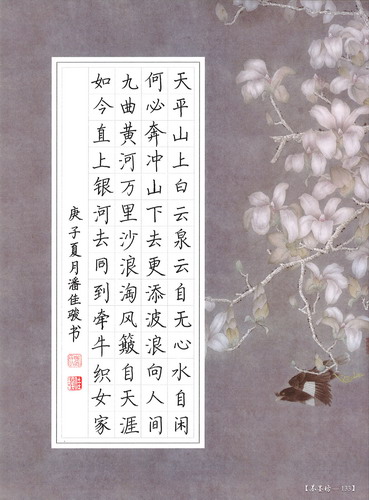 天平山上白云泉云自无心水自闲
何必奔冲山下去更添波浪向人间
九曲黄河万里沙浪淘风簸自天涯
如今直上银河去同到牵牛织女家
庚子夏月潘佳书